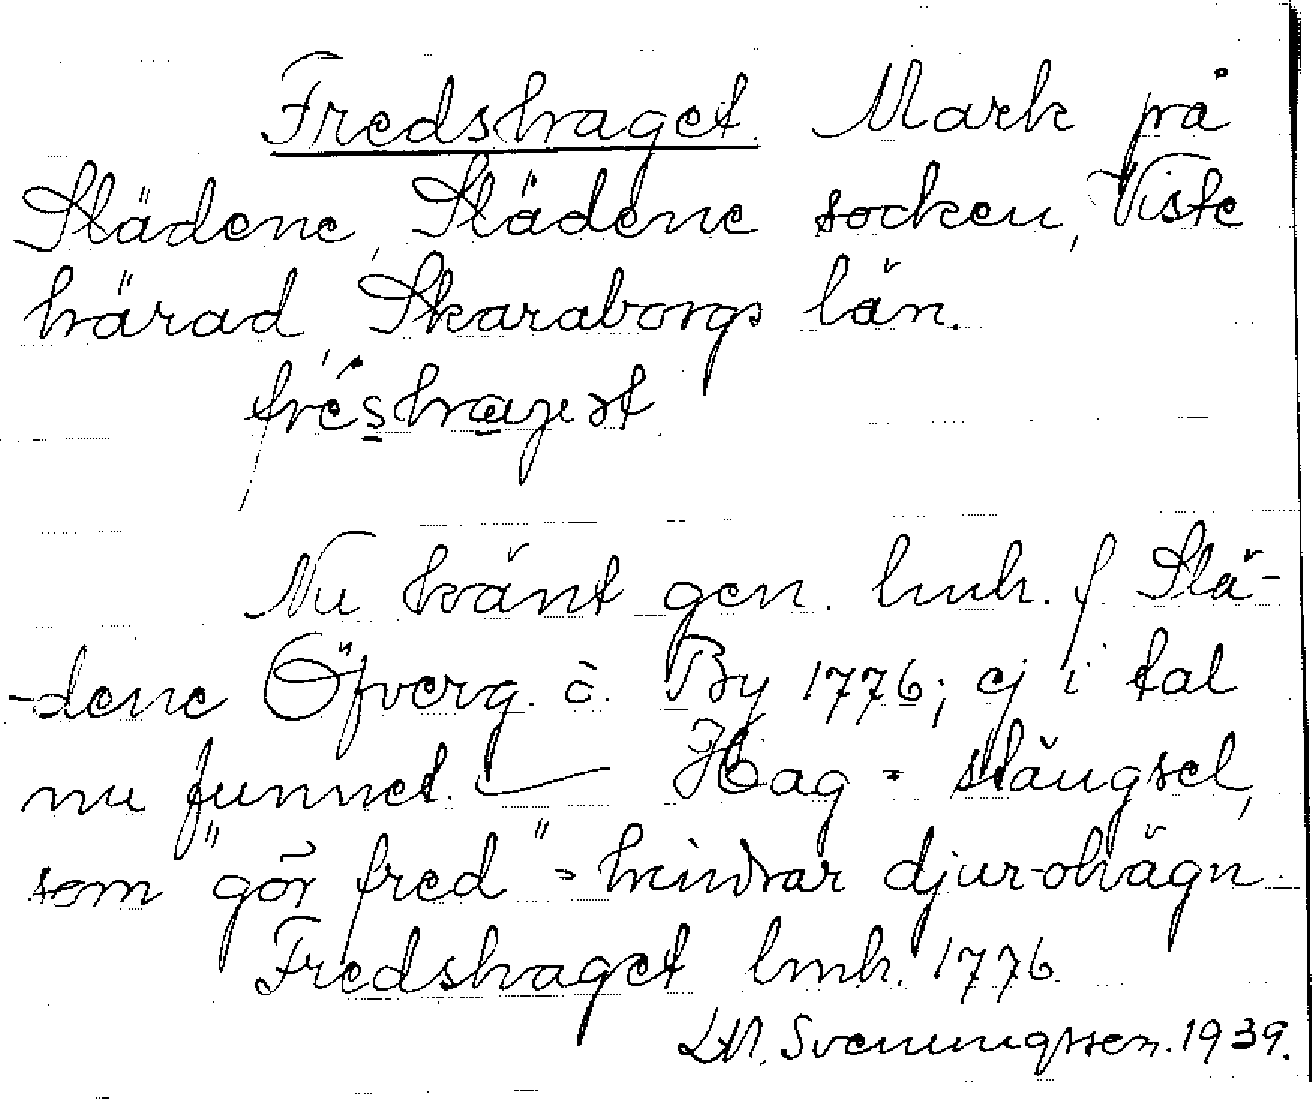 Fredshaget. Mark på
Slädene, Slädene socken, Viste
härad Skaraborgs län.
fréshaget
Nu känt gen. lmh. f Slä-
-dene Öfverg. o. By 1776; ej i tal
nu funnet. — Hag = stängsel,
som "gör fred" = hindrar djur-ohägn.
Fredshaget lmh. 1776.
Svenungsson. 1939.